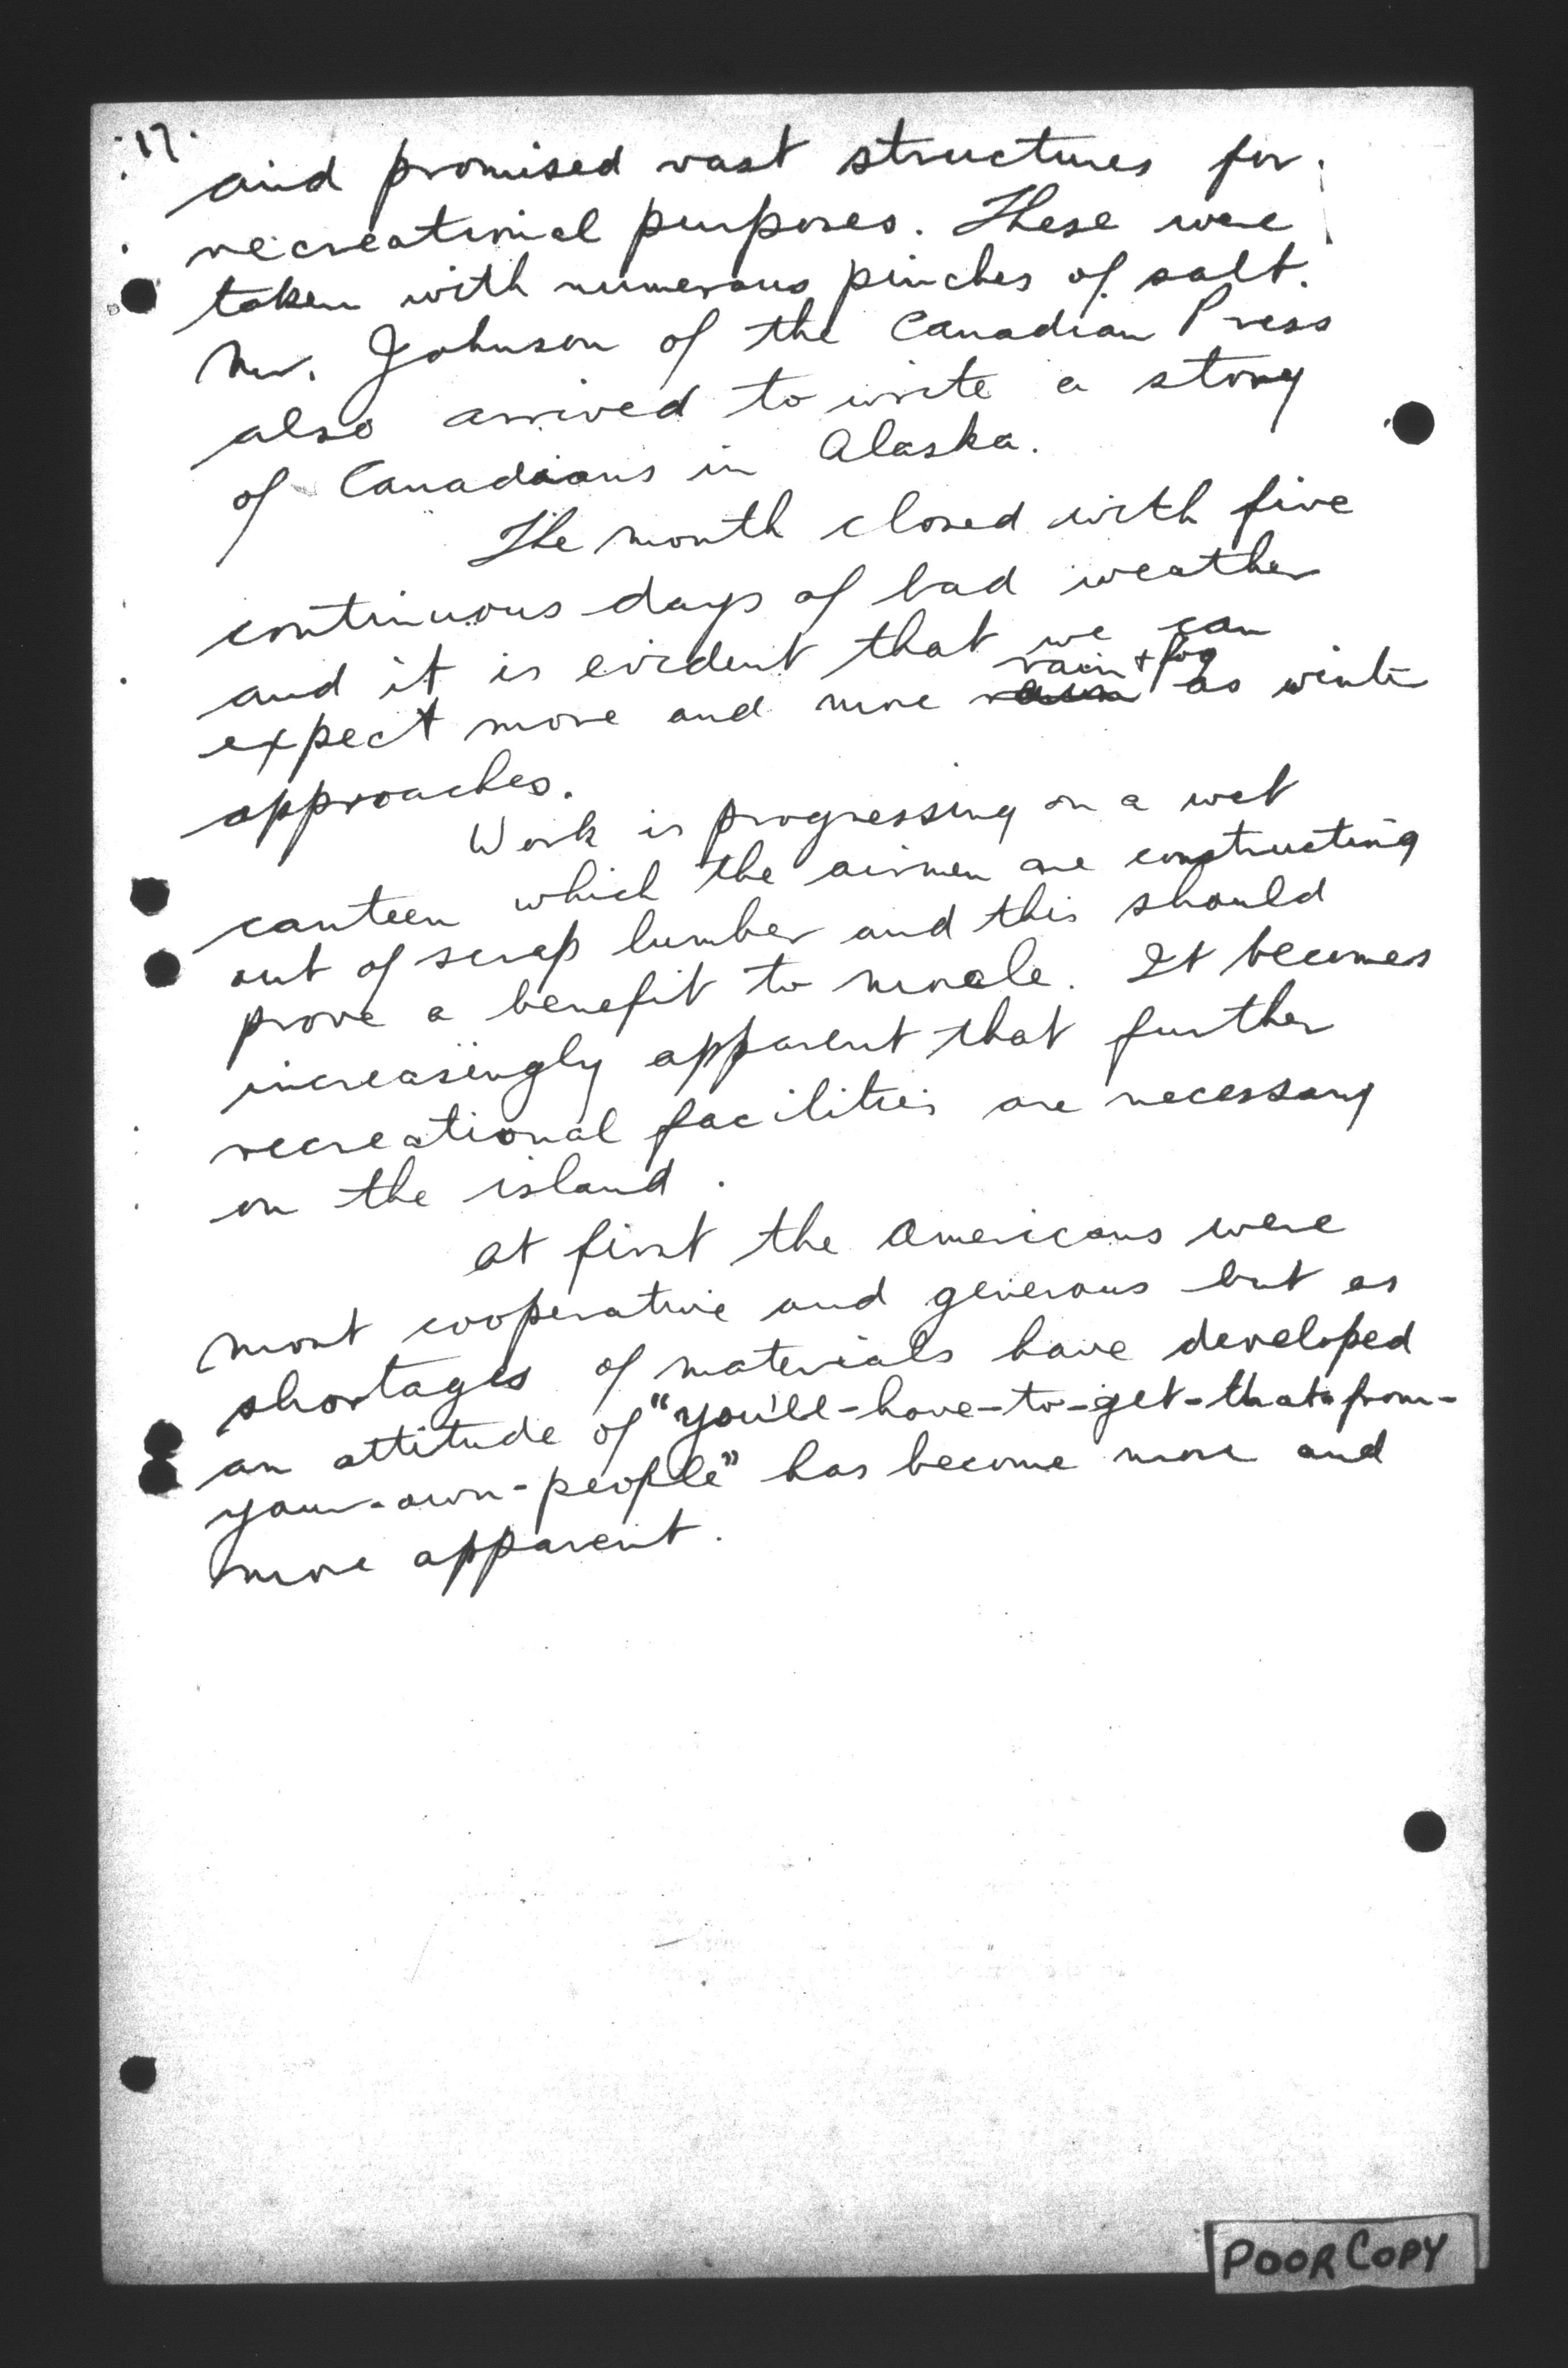 17.
and promised vast structures for
recreational purposes. These were
taken with numerous pinches of salt.
Mr. Johnson of the Canadian Press
also arrived to write a story
of Canadians in Alaska.
The month closed with five
continuous days of bad weather
and it is evident that we can
rain + fog
expect more and more rain as winter
approaches.
Work is progressing on a wet
canteen which the airmen are constructing
out of scrap lumber and this should
prove a benefit to morale. It becomes
increasingly apparent that further
recreational facilities are necessary
on the island.
At first the Americans were
most cooperative and generous but as
shortages of materials have developed
an attitude of "you'll-have-to-get-that-from-
your-own-people" has become more and
more apparent.
POOR COPY